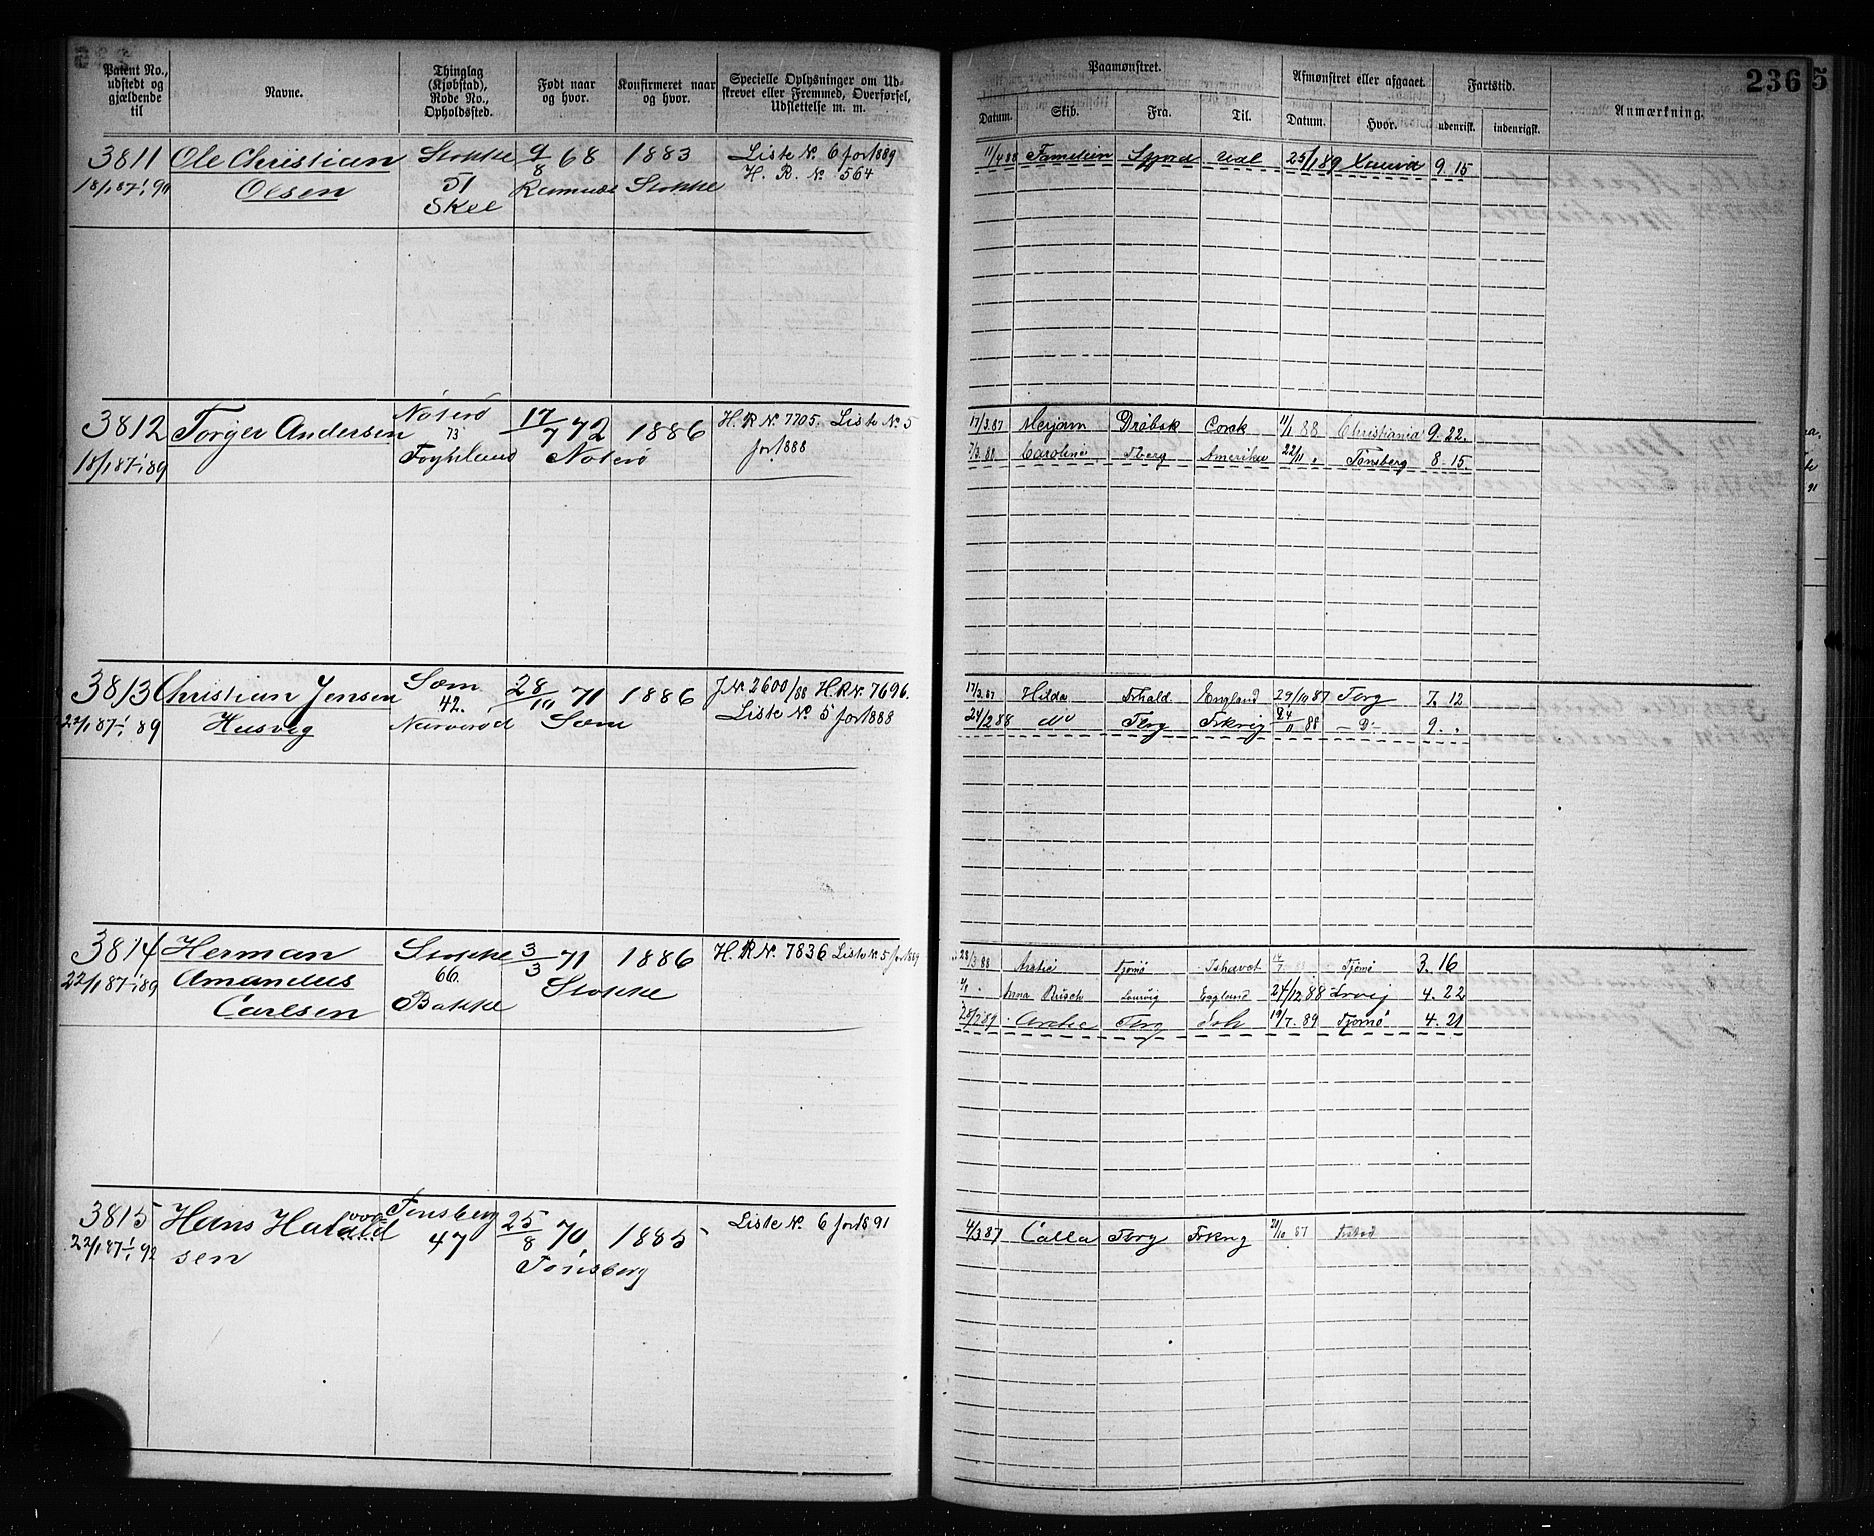 236 5
Patent No., udstedt og gjældende til
Navne.
Thinglag (Kjøbstad), Rode No., Opholdssted.
Født naar og hvor.
Konfirmeret naar og hvor.
Specielle Oplysninger om Udskrevet eller Fremmed, Overførsel, Udslettelse m. m.
Paamønstret.
Afmønstret eller afgaaet.
Fartstid.
Anmærkning.
Datum. Skib. Fra. Til. Datum. Hvor. udenrigsk. indenrigsk.
3811 Ole Christian Stokke 9/8 68 1883 Liste No. 6 for 1889
18/1 87-1/1 90 Olsen 51 Ramnæs Stokke H. R. No 564
Skee
11/4 88 Familien Udl 25/1 89 9. 15
3812 Torger Andersen Nøterø 17/7 72 1886 H. R No. 7705. Liste No. 5
18/1 87-1/1 89 73 Nøterø for 1888
17/3.87 Merjam Drøbak Cork 11/1 88 Christiania 9. 22.
7/3. 88 Caroline Tberg Amerika 22/11 " Tønsberg 8. 15.
3813 Christian Jensen Sæm 28/10 71 1886 J. No 2600/88 H. R No. 7696.
22/1 87-1/1 89 Husvig 42. Sæm Liste No. 5 for 1888
Narverød
17/3.87 Hilda Frhald England 29/10 87 Tbrg 7. 12
24/2 88 do Tbrg Frkvig 24/11 88 - D: 9. "
3814 Herman Stokke 3/3 71 1886 H. R No. 7836 Liste No. 5 for 1889
22/1 87-1/1 89 Amandus 66. Stokke
Carlsen Bakke
28/3. 88 Arctic Tjømø Ishavet Tjømø 3. 16
Anna Busch Laurvig England 24/12 88 Lrvig 4. 22
28/2 89 Arctic Tbrg Ish 19/7. 89 Tjømø 4. 21
3815 Hans Harald Tønsberg 25/8 70 1885 Liste No. 6 for 1891
22/1 87-1/1 92 sen 47 Tønsberg
4/3 87 Calla Tbrg Frkvg 21/10 87